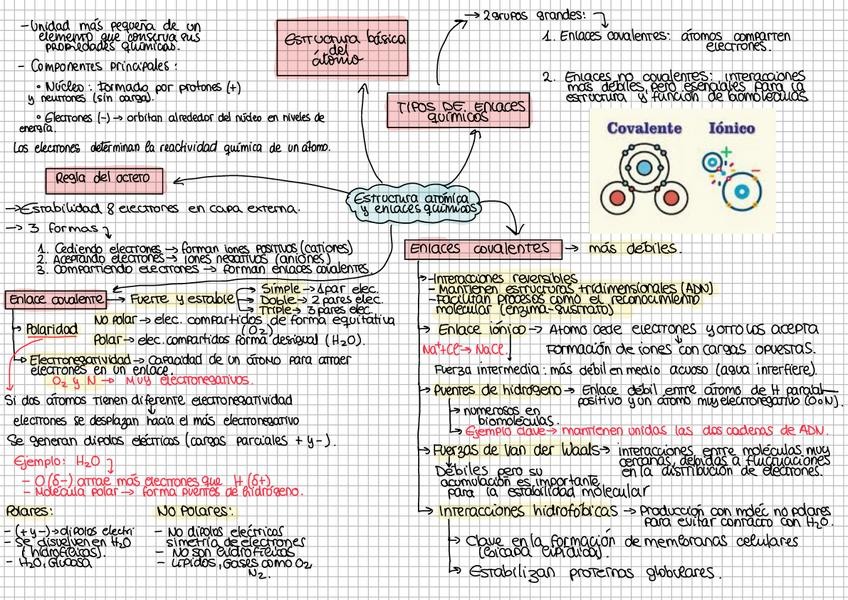 -Unidad más pequeña de un
elemento que conserva sus
propiedades químicas.
- Componentes principales:
• Núcleo: formado por protones (+)
y neutrones (sin carga).
• Electrones (-) → orbitan alrededor del núcleo en niveles de
energía.
Los electrones determinan la reactividad química de un átomo.
Estructura básica
del
átomo
→ 2 grupos grandes:
1. Enlaces covalentes: átomos comparten
electrones.
2. Enlaces no covalentes: interacciones
más débiles, pero esenciales para la
estructura y función de biomoléculas
TIPOS DE ENLACES
QUÍMICOS
Covalente Iónico
Estructura atómica
y enlaces químicos
Regla del octeto
→Estabilidad 8 electrones en capa externa.
→ 3 formas
1. Cediendo electrones → forman iones positivos (cationes)
2. Aceptando electrones → iones negativos (aniones)
3. Compartiendo electrones → forman enlaces covalentes
Enlace covalente → Fuerte y estable
Simple → 1 par elec.
Doble → 2 pares elec.
Triple → 3 pares elec.
Polaridad
No Polar → elec. compartidos de forma equitativa
(O2)
Polar → elec. compartidos forma desigual (H2O).
Electronegatividad → Capacidad de un átomo para atraer
electrones en un enlace.
O2 y N → Muy electronegativos.
Si dos átomos tienen diferente electronegatividad
electrones se desplazan hacia el más electronegativo
Se generan dipolos eléctricos (cargas parciales + y -).
Ejemplo: H2O
- O(δ-) atrae más electrones que H (δ+)
- Molécula polar → forma puentes de hidrógeno.
Polares:
- (+ y -) → dipolos electri
- Se disuelven en H2O
(hidrofílicas).
- H2O, Glucosa
No Polares:
- No dipolos eléctricos
simetría de electrones
- No son hidrofílicas
- Lípidos, Gases como O2,
N2.
Enlaces covalentes → más débiles.
-Interacciones reversibles
-Mantienen estructuras tridimensionales (ADN)
-Facilitan procesos como el reconocimiento
molecular (enzima-sustrato)
Enlace iónico → Atomo cede electrones y otro los acepta
Na⁺+Cl⁻→ NaCl
Formación de iones con cargas opuestas.
Fuerza intermedia: más débil en medio acuoso (agua interfiere).
Puentes de hidrógeno → Enlace débil entre átomo de H parcial
positivo y un átomo muy electronegativo (O o N).
numerosos en
biomoléculas.
Ejemplo clave → mantienen unidas las dos cadenas de ADN.
Fuerzas de Van der Waals → interacciones entre moléculas muy
cercanas, debidas a fluctuaciones
en la distribución de electrones.
Débiles pero su
acumulación es importante
para la estabilidad molecular
Interacciones hidrofóbicas → Producción con moléc no polares
para evitar contacto con H2O.
Clave en la formación de membranas celulares
(bicapa lipídica).
Estabilizan proteínas globulares.